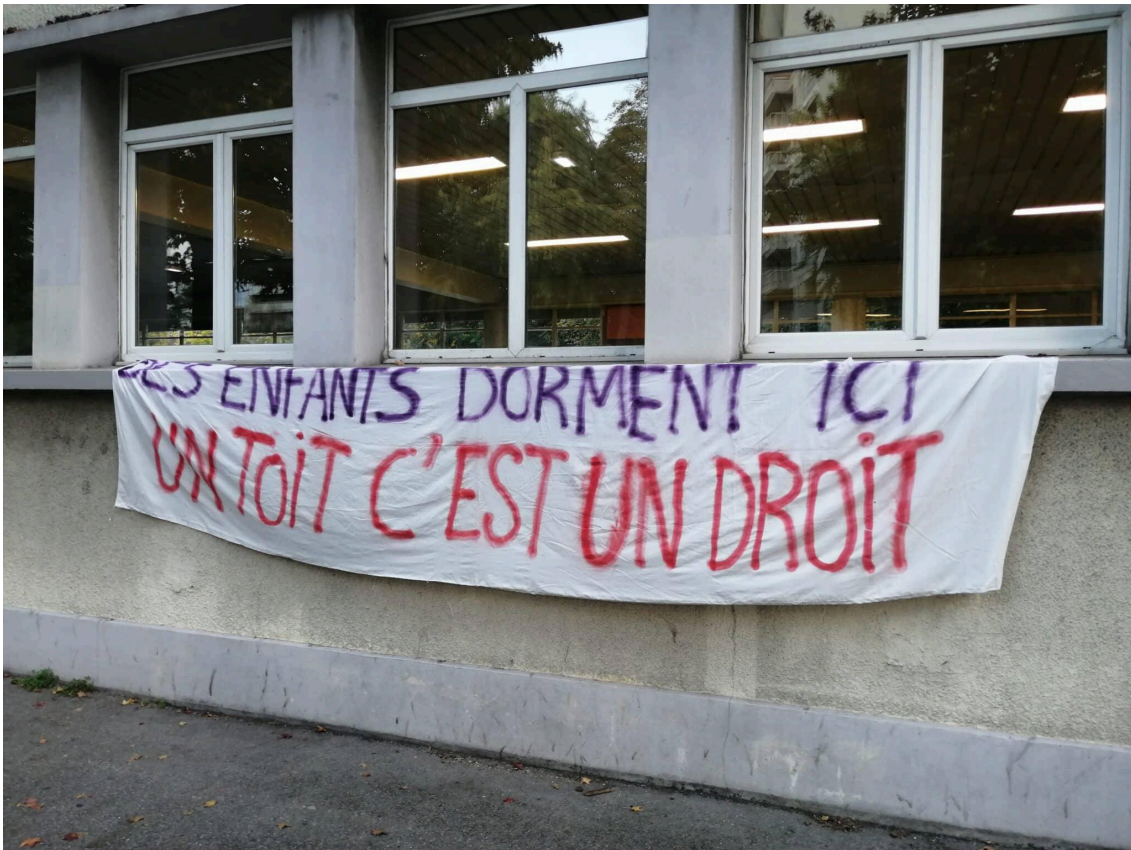 DES ENFANTS DORMENT ICI
UN TOIT C'EST UN DROIT